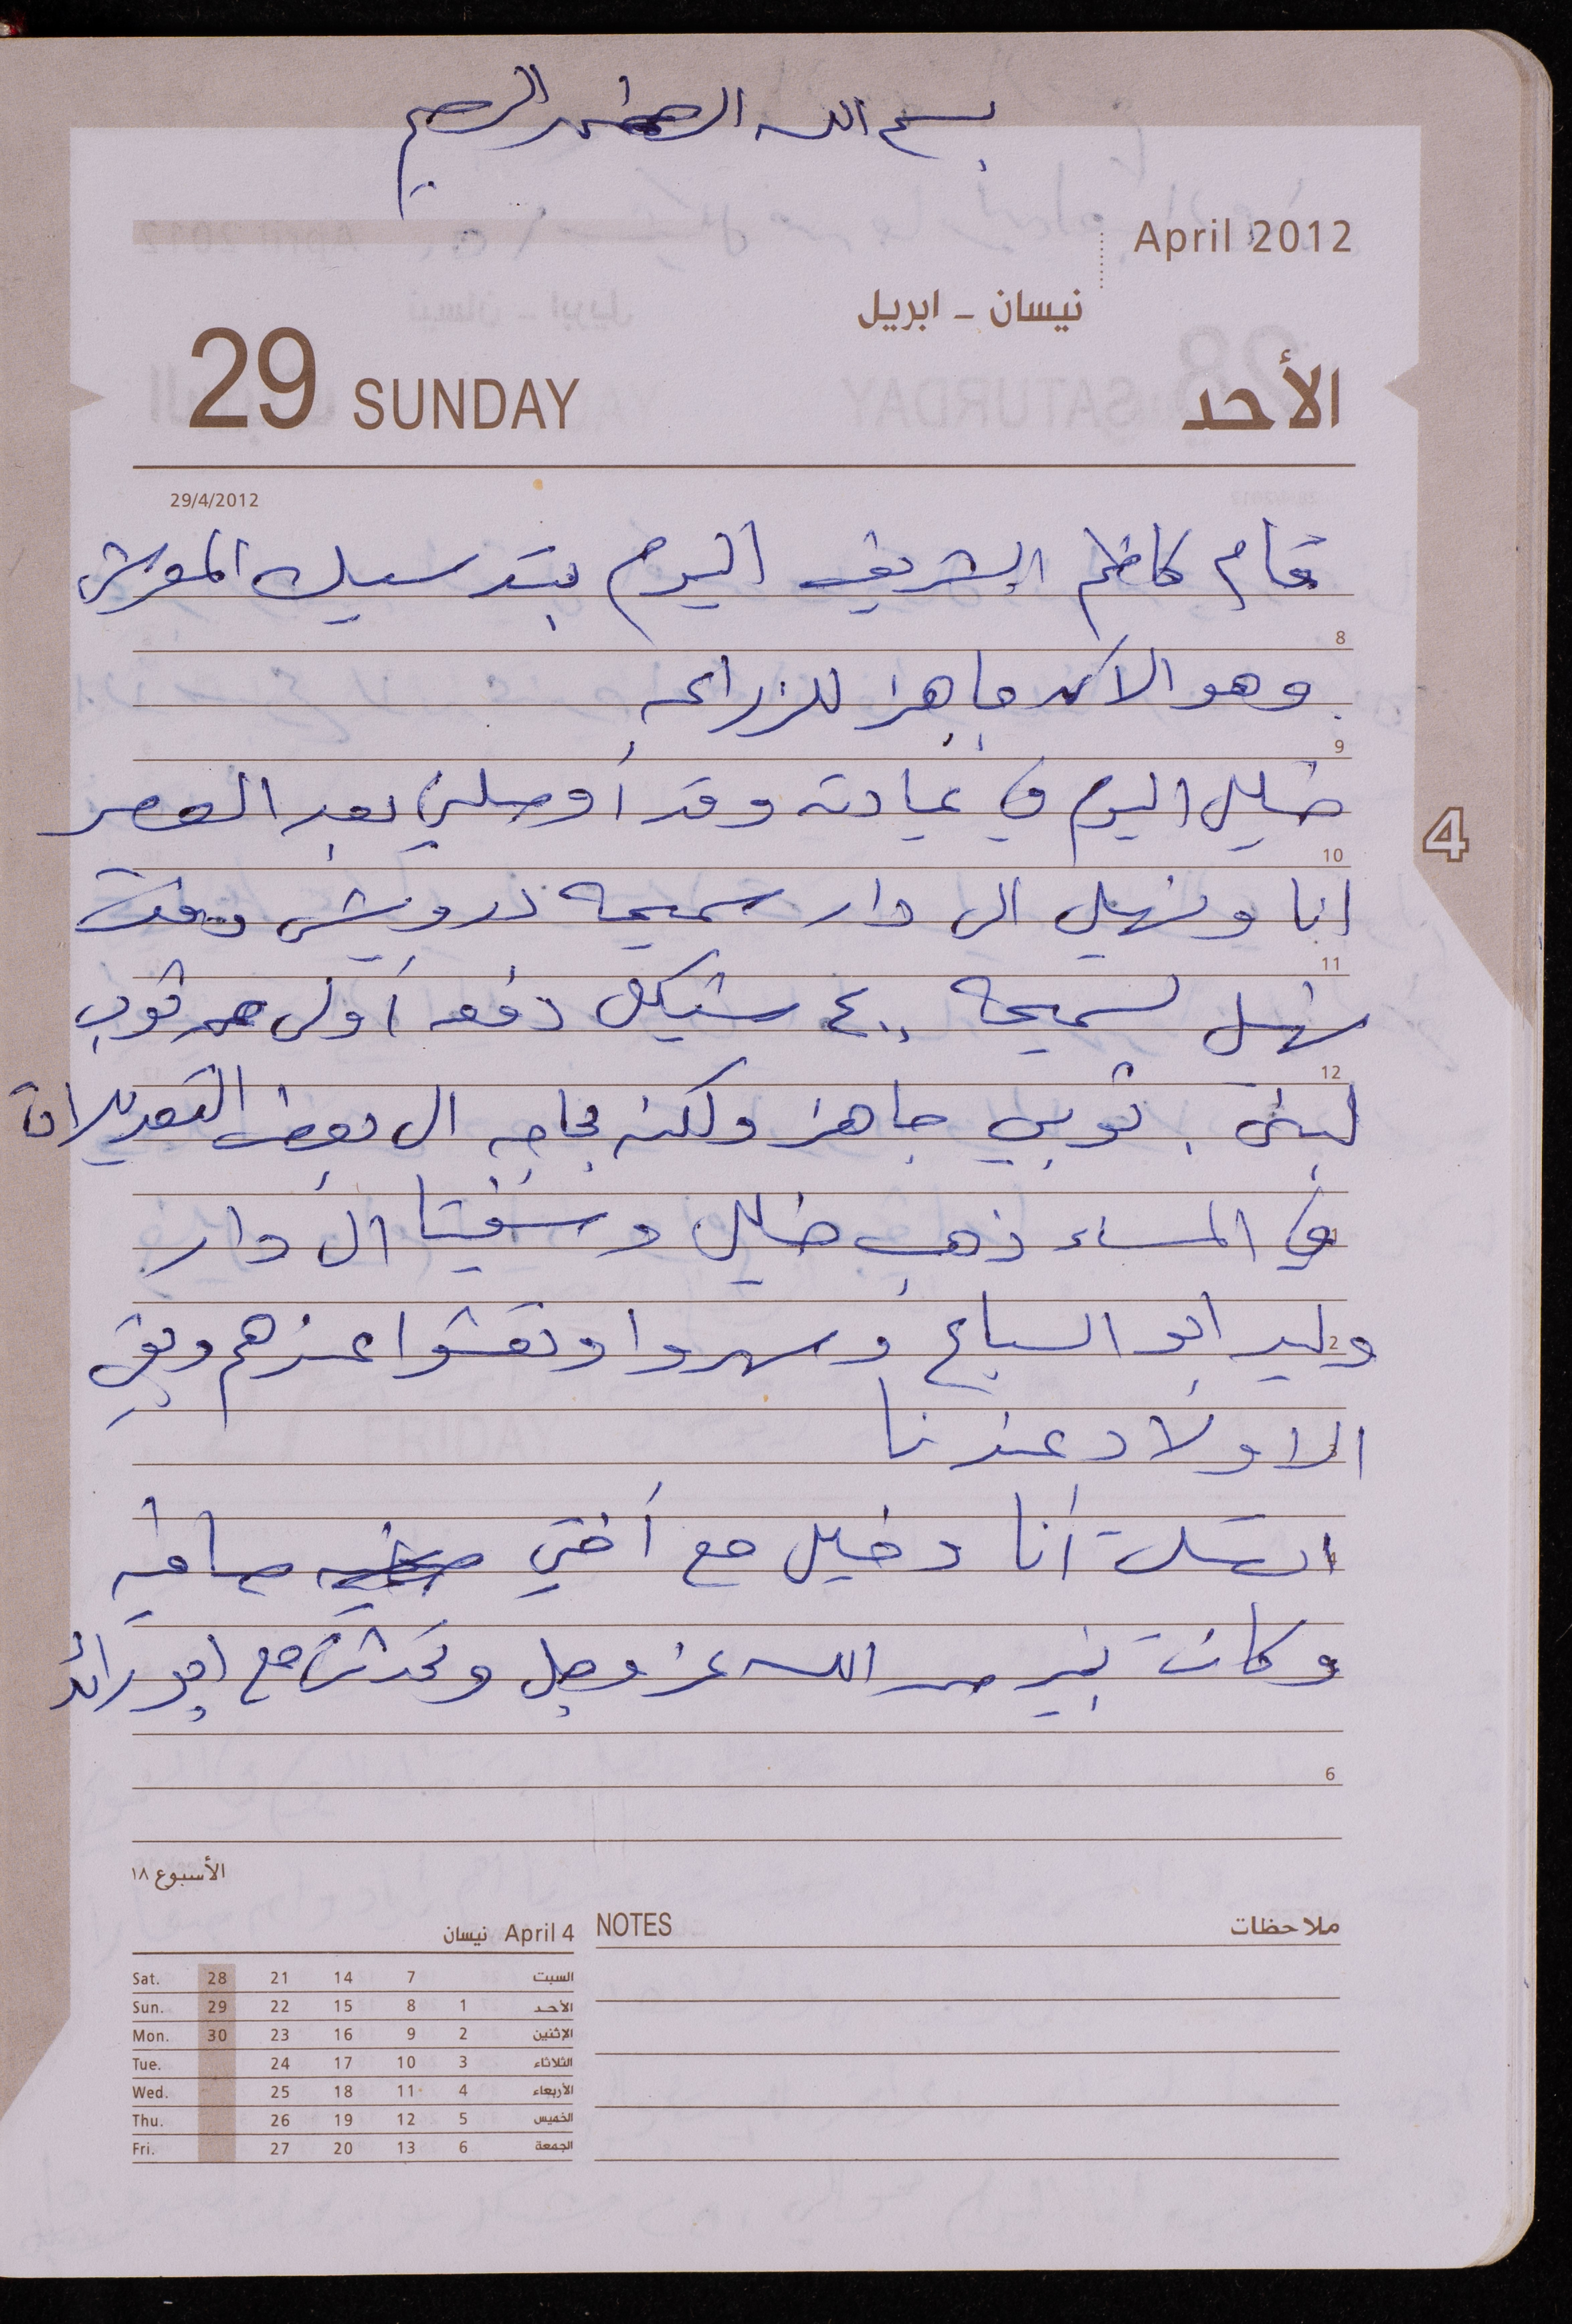 بسم الله الرحمن الرحيم
April 2012
نيسان - ابريل
29 SUNDAY الأحد
29/4/2012
قام كاظم الشريف اليوم المعرش
8
وهو الآن جاهز للزراعه
9
خليل اليوم في عيادته وقد أوصلني بعد العصر
4
10
انا ونهيل الى دار سميحه درويش دفعت
11
نهيل لسميحه ٤٠٠ شيكل دفعه أولى من ثوب
12
لبنى . ثوبي جاهز ولكنه بحاجه الى بعض التعديلات
1
في المساء ذهب خليل وسفيتا الى دار
2
وليد ابو السباع وسهروا وتعشوا عندهم وبقي
3
الاولاد عندنا
اتصلت أنا وخليل مع أختي صافيه
وكانت بخير من الله عز وجل وتحدثت مع ابو رائد
6
الأسبوع ١٨
NOTES ملاحظات
April 4 نيسان
Sat. 28 21 14 7 السبت
Sun. 29 22 15 8 1 الأحد
Mon. 30 23 16 9 2 الإثنين
Tue. 24 17 10 3 الثلاثاء
Wed. 25 18 11 4 الأربعاء
Thu. 26 19 12 5 الخميس
Fri. 27 20 13 6 الجمعة